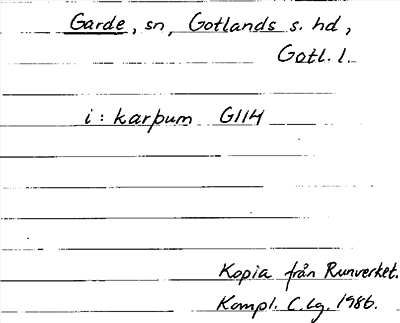 Garde, sn, Gotlands s. hd,
Gotl. l.
i : karþum G114
Kopia från Runverket.
Kompl. C.Lg. 1986.